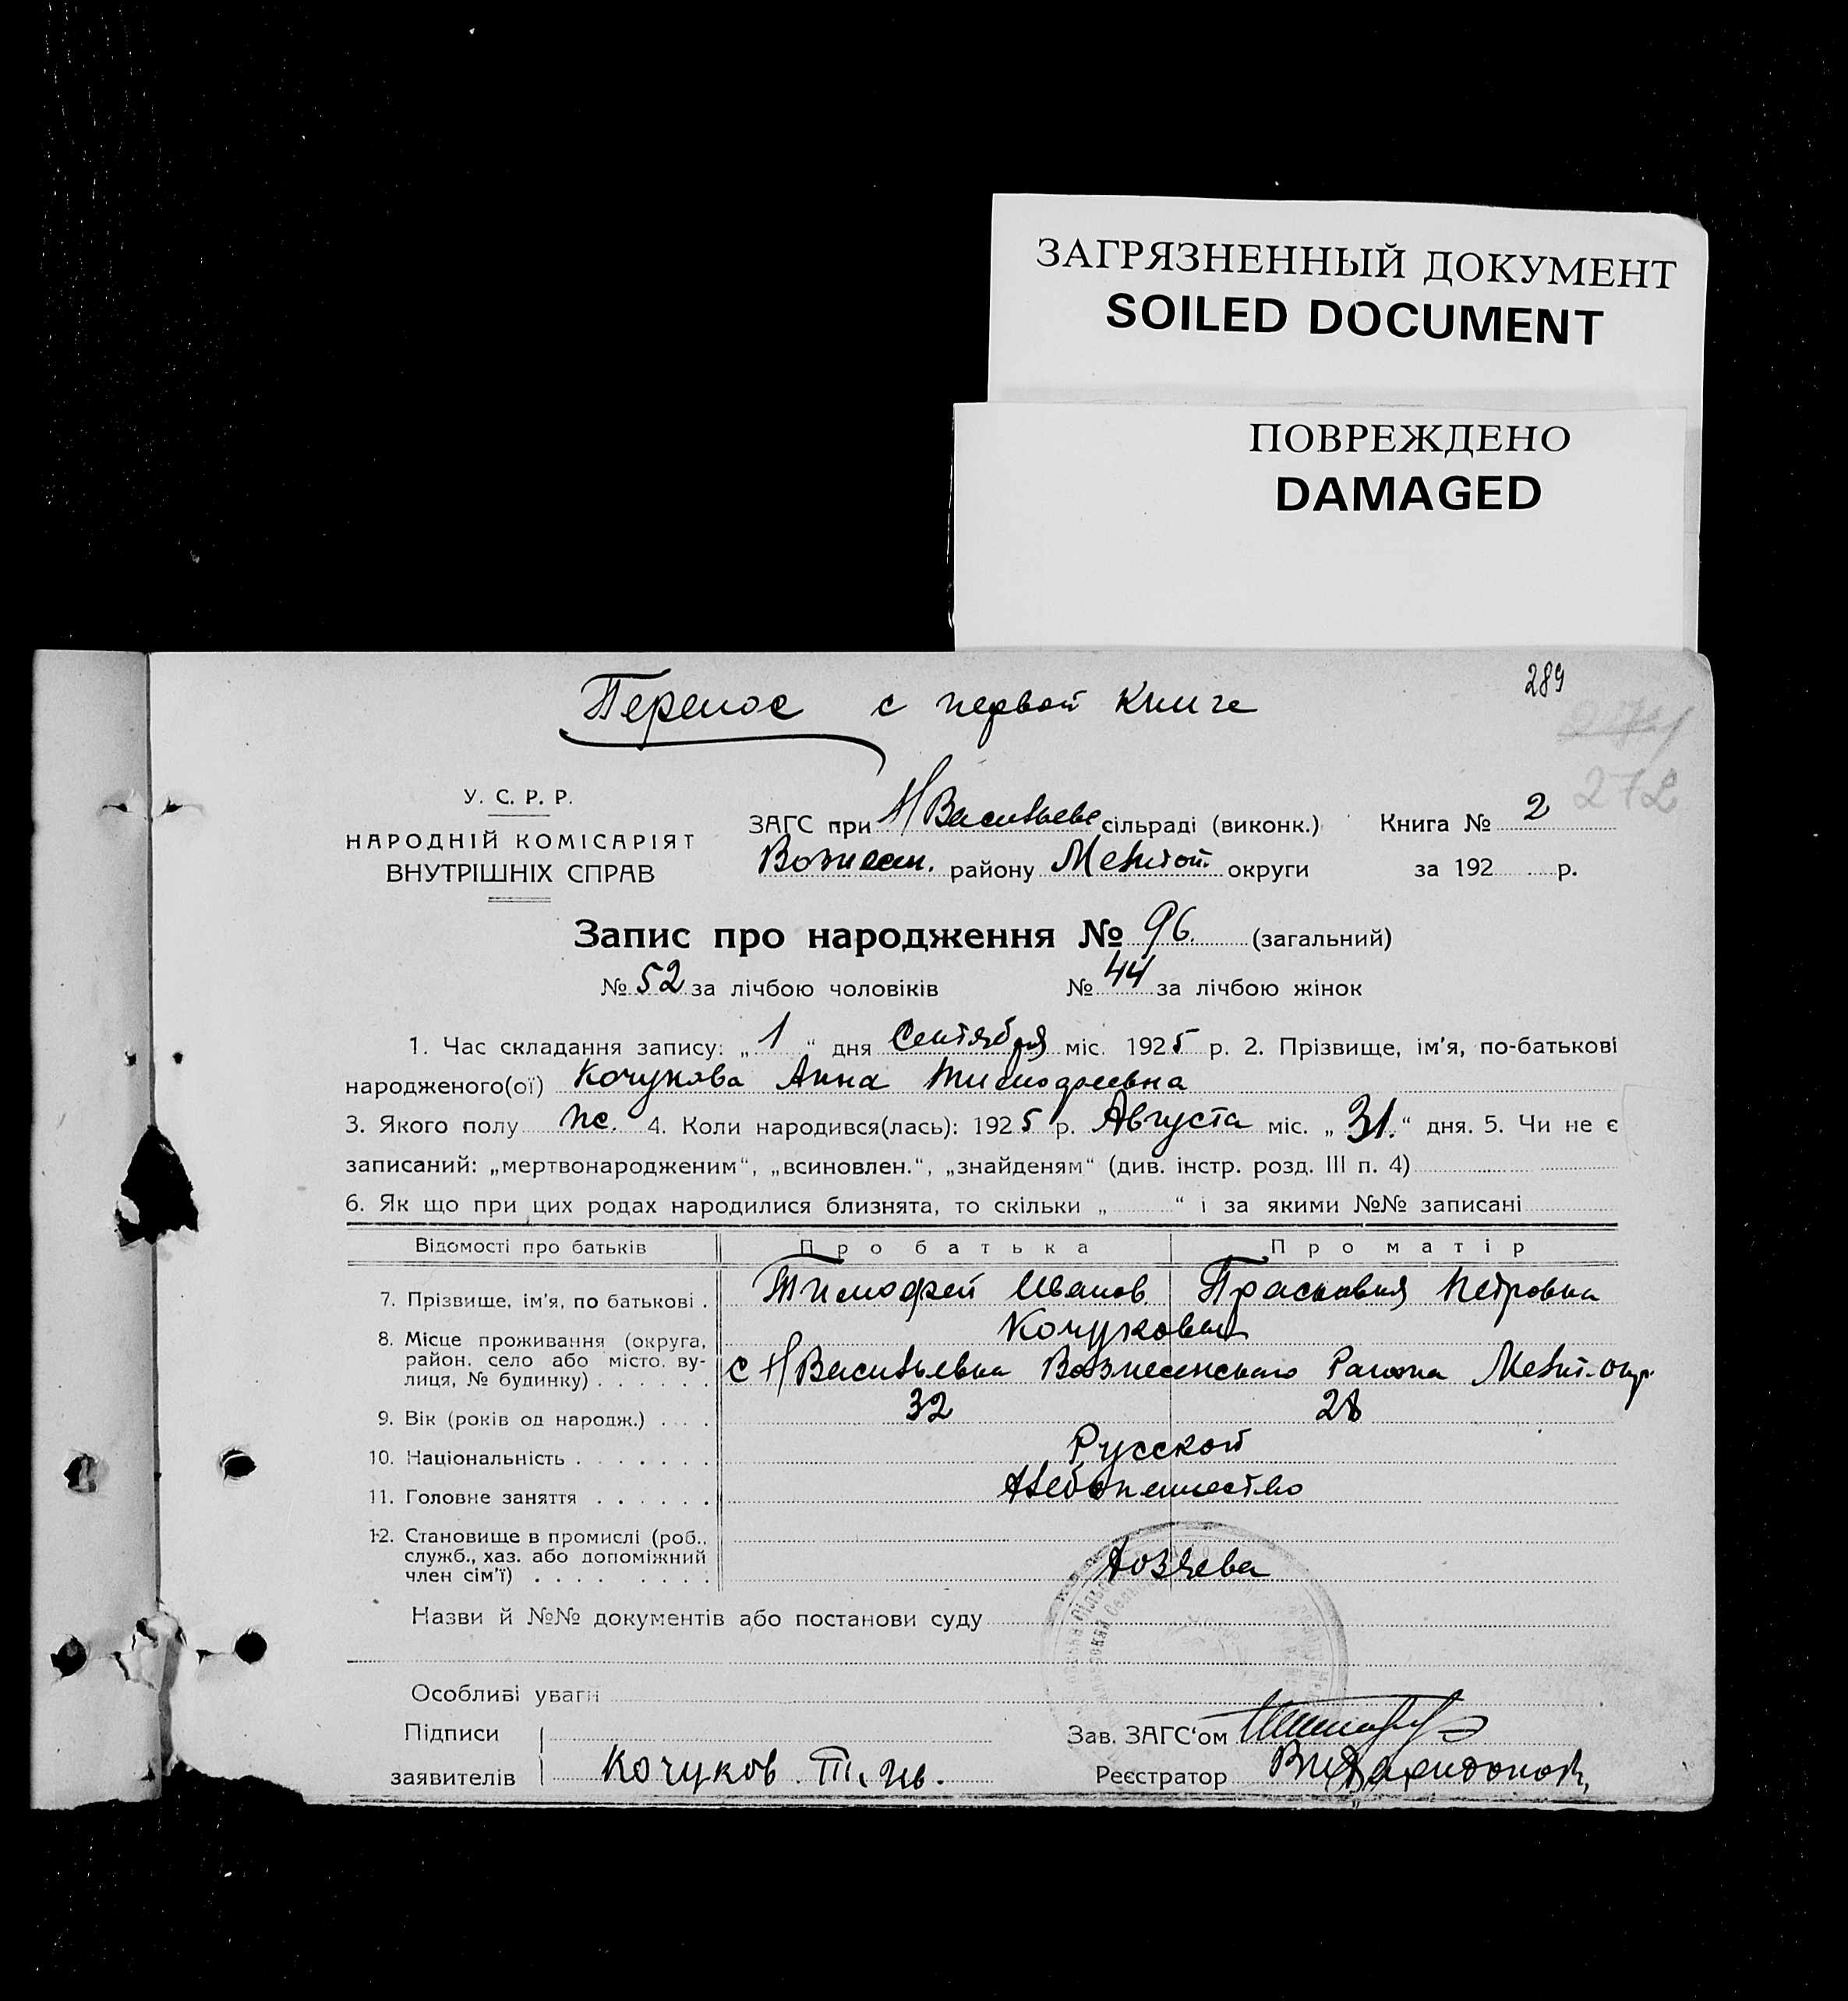 ЗАГРЯЗНЕННЫЙ ДОКУМЕНТ
SOILED DOCUMENT
ПОВРЕЖДЕНО
DAMAGED
289
Перенос с первой книге
272
У. С. Р. Р.
НАРОДНІЙ КОМІСАРІЯТ
ВНУТРІШНІХ СПРАВ
ЗАГС при Н Васильеве сільраді (виконк.) Книга № 2
Вознесен. району Мелитоп. округи за 192 р.
Запис про народження № 96. (загальний)
№ 52 за лічбою чоловіків № 44 за лічбою жінок
1. Час складання запису: „ 1 “ дня Сентября міс. 1925 р. 2. Прізвище, ім'я, по-батькові
народженого(ої) Кочукова Анна Тимофеевна
3. Якого полу же. 4. Коли народився(лась): 1925 р. Августа міс. „ 31. “ дня. 5. Чи не є
записаний: „мертвонародженим“, „всиновлен.“, „знайденям“ (див. інстр. розд. III п. 4)
6. Як що при цих родах народилися близнята, то скільки „ “ і за якими №№ записані
Відомості про батьків Про батька Про матір
7. Прізвище, ім'я, по батькові . Тимофей Иванов. Прасковия Петровна
Кочуковы
8. Місце проживання (округа,
район, село або місто, ву-
лиця, № будинку) . . . . . . с Н Васильевка Вознесенского Района Мелит. окр.
9. Вік (років од народж.) . . . 32 28
10. Національність . . . . . . . Русской
11. Головне заняття . . . . . . Хлебопешество
12. Становище в промислі (роб.,
служб., хаз. або допоміжний
член сім'ї) . . . . . . . . Хозяева
Назви й №№ документів або постанови суду
Особливі уваги
Підписи
заявителів Кочуков. Т. Ив.
Зав. ЗАГС'ом
Реєстратор